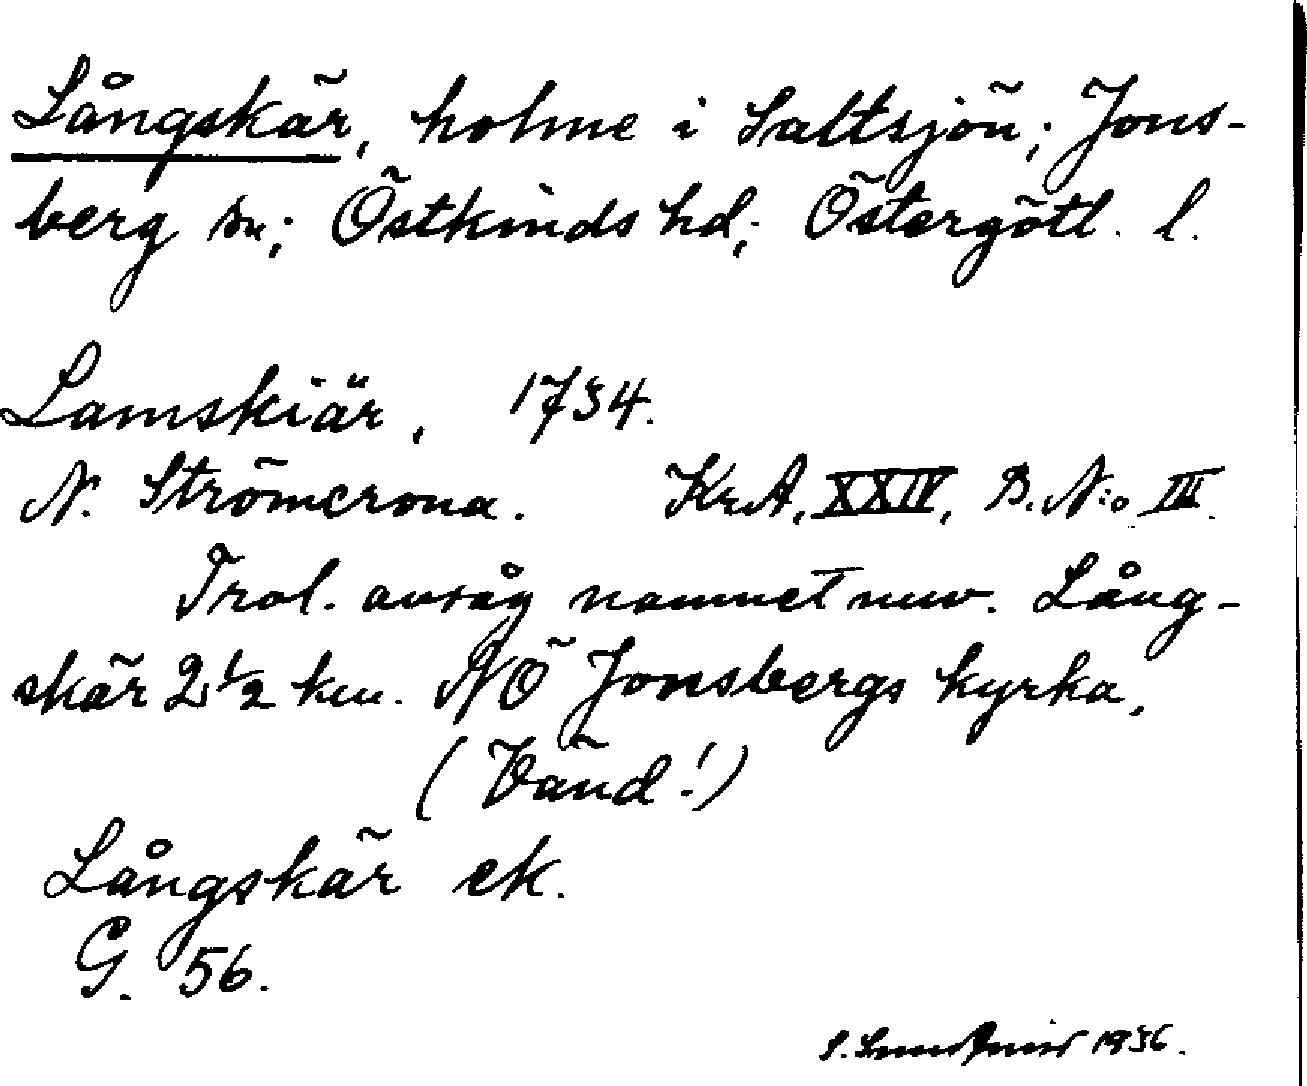 Långskär, holme i Saltsjön; Jons-
berg sn; Östkinds hd; Östergötl. l.
Lamskiär, 1734.
N. Strömcrona. Kr.A, XXIV, B. N:o III.
Trol. avsåg namnet nuv. Lång-
skär 2 1/2 km. NÖ Jonsbergs kyrka,
(Vänd!)
Långskär ek.
G. 56.
S. 1936.